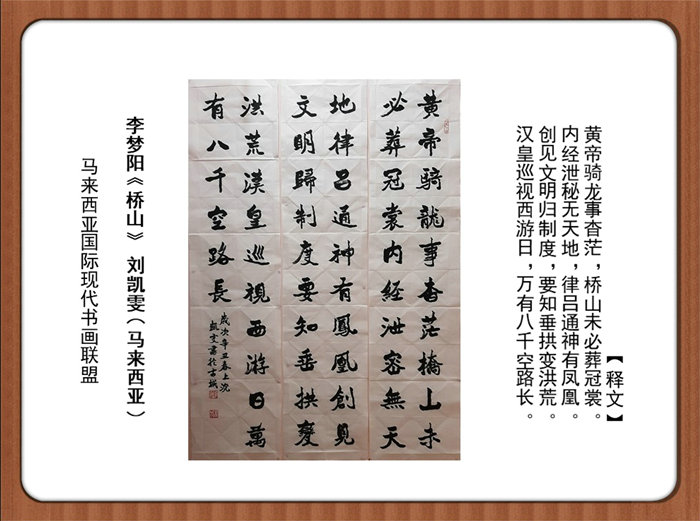 【释文】
黄帝骑龙事杳茫，桥山未必葬冠裳。
内经泄秘无天地，律吕通神有凤凰。
创见文明归制度，要知垂拱变洪荒。
汉皇巡视西游日，万有八千空路长。
黄帝騎龍事杳茫橋山未
必葬冠裳内经泄密無天
地律吕通神有鳳凰創見
文明歸制度要知垂拱變
洪荒漢皇巡視西游日萬
有八千空路長
歲次辛丑春上浣
凱雯書於古城
李梦阳《桥山》 刘凯雯（马来西亚）
马来西亚国际现代书画联盟